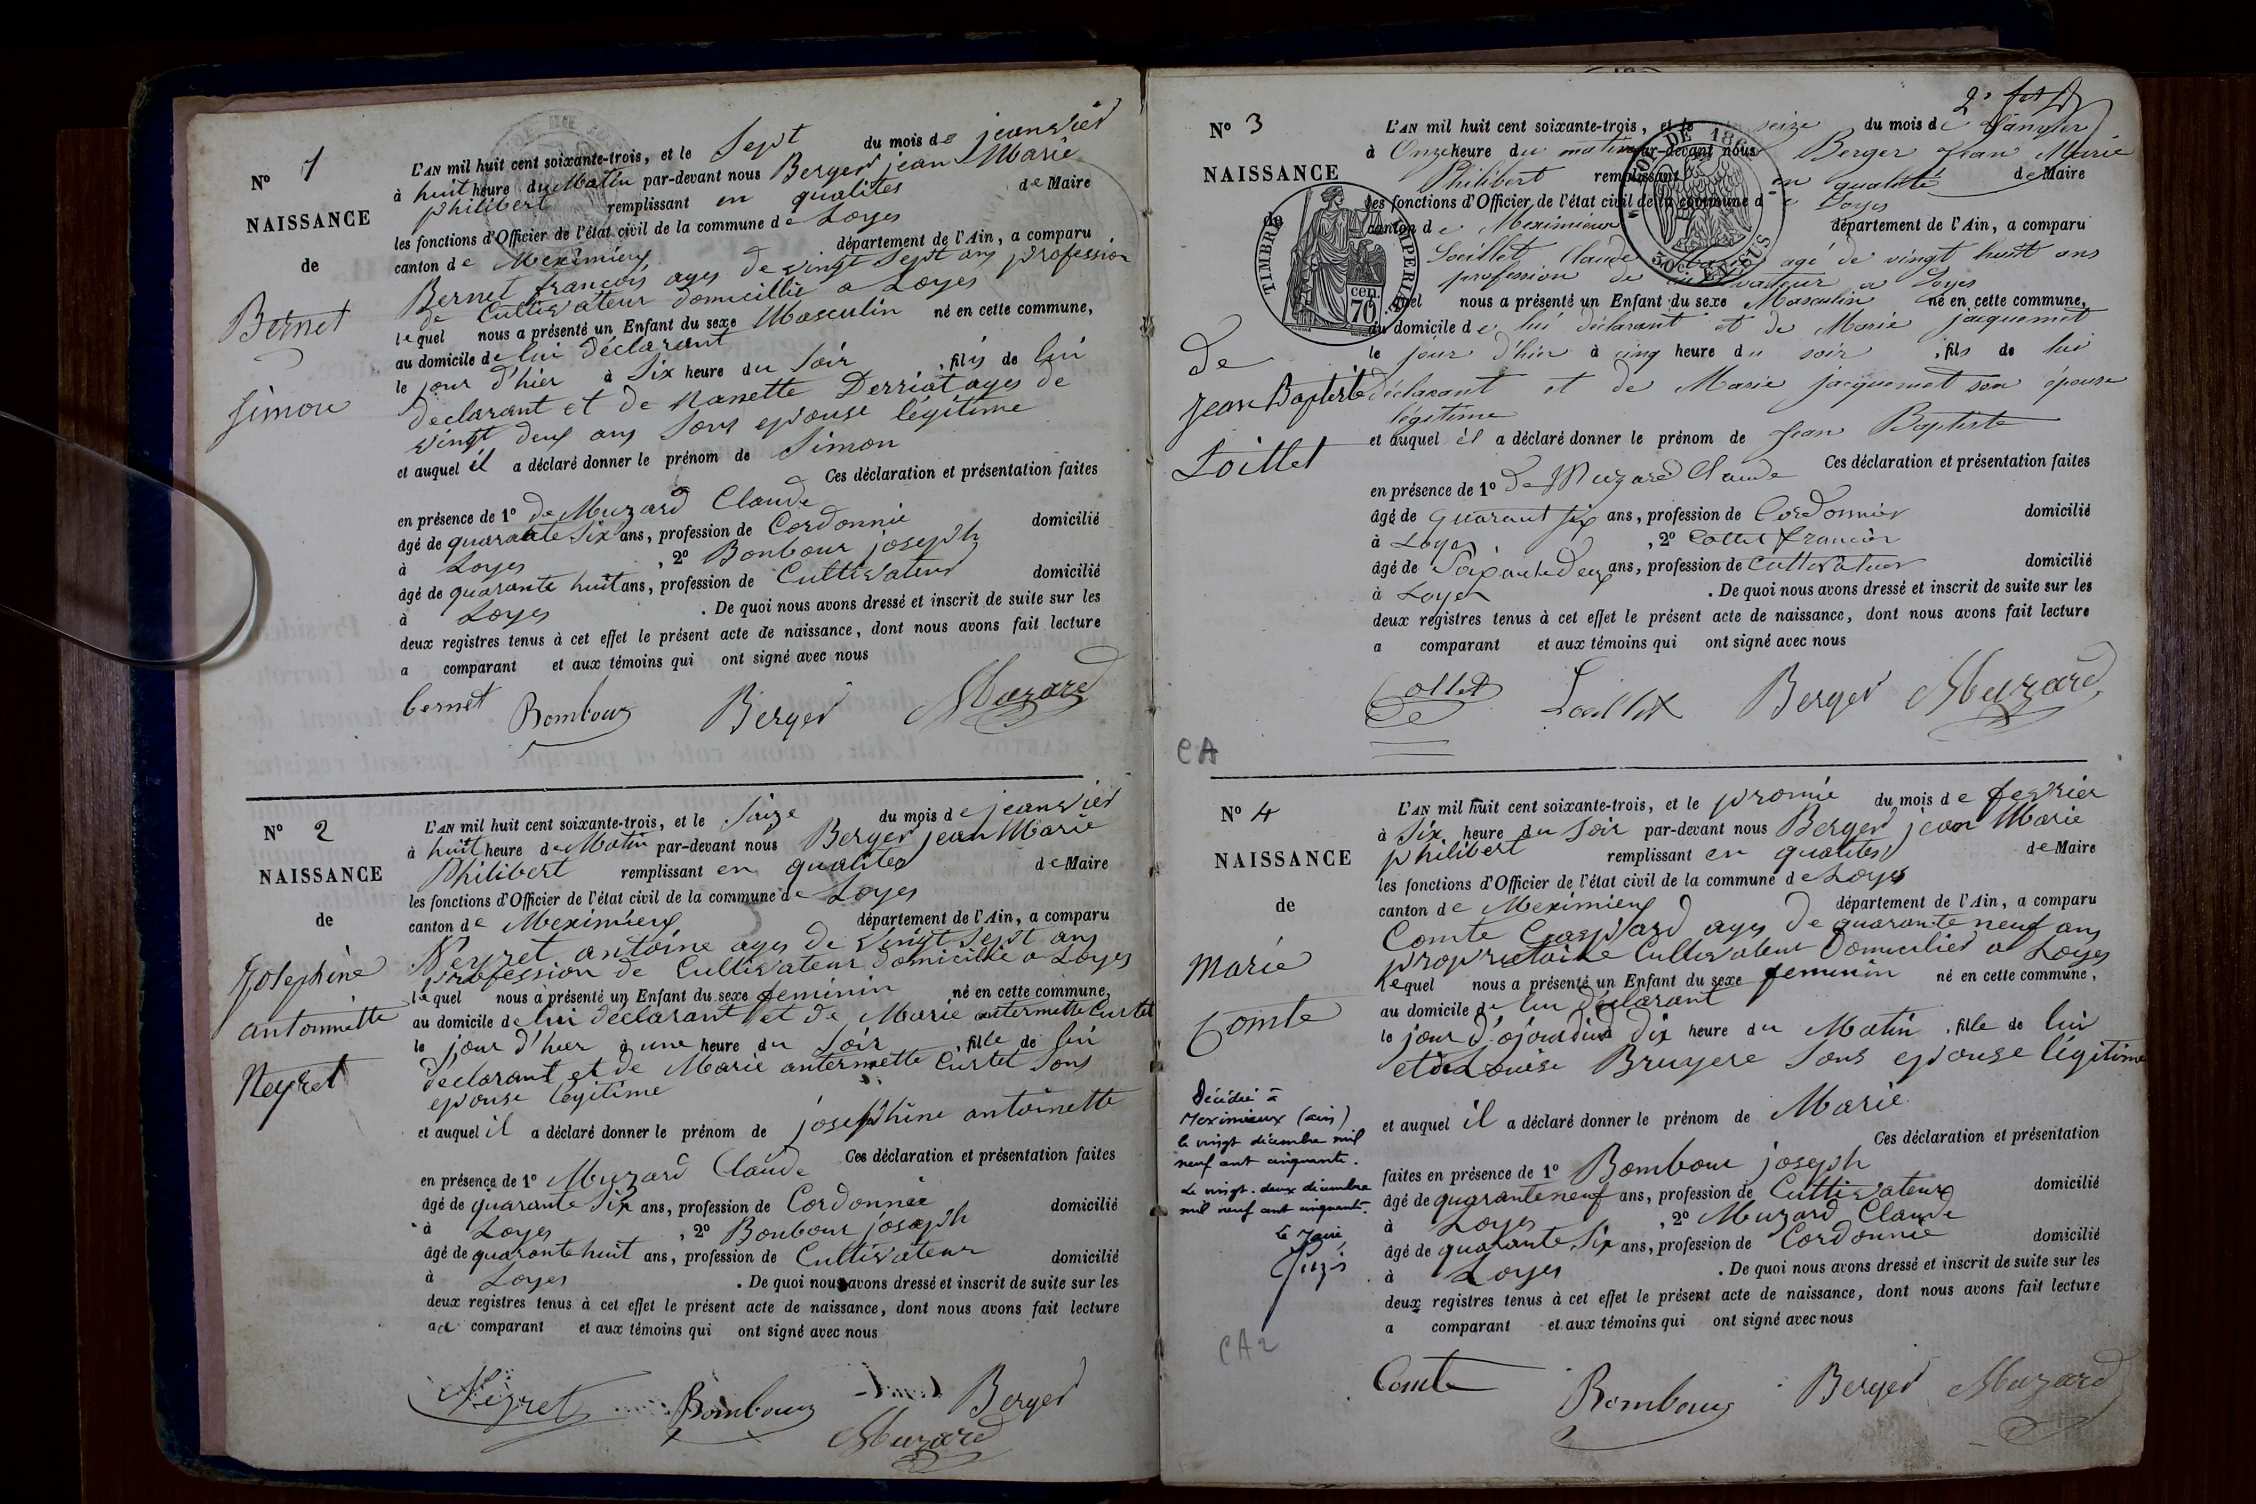 N° 1
NAISSANCE
de
Bernet
Simon
L'AN mil huit cent soixante-trois, et le Sept du mois de jeanvier
à huit heure du Matin par-devant nous Berger jean Marie
philibert remplissant en qualites de Maire
les fonctions d'Officier de l'état civil de la commune de Loyes
canton de Meximieux département de l'Ain, a comparu
Bernet françois ages de vingt Sept ans profession
de Cultivateur domicillie a Loyes
lequel nous a présenté un Enfant du sexe Masculin né en cette commune,
au domicile de lui déclarant
le jour d'hier à Six heure du Soir, fils de lui
declarant et de Nanette Derriat ages de
vingt deux ans Sons epouse légitime
et auquel il a déclaré donner le prénom de Simon
Ces déclaration et présentation faites
en présence de 1° de Muzard Claude
âgé de quarante Six ans, profession de Cordonnie domicilié
à Loyes, 2° Bonbour joseph
âgé de quarante huit ans, profession de Cultivateur domicilié
à Loyes. De quoi nous avons dressé et inscrit de suite sur les
deux registres tenus à cet effet le présent acte de naissance, dont nous avons fait lecture
a comparant et aux témoins qui ont signé avec nous
bernet Bombour Berger Muzard
N° 2
NAISSANCE
de
Josephine
antoinnette
Neyret
L'AN mil huit cent soixante-trois, et le Saize du mois de jeanvier
à huit heure de Matin par-devant nous Berger jean Marie
Philibert remplissant en qualites de Maire
les fonctions d'Officier de l'état civil de la commune de Loyes
canton de Meximieux département de l'Ain, a comparu
Neyret antoine ages de vingt Sept ans
profession de Cultivateur domicillie a Loyes
lequel nous a présenté un Enfant du sexe feminin né en cette commune,
au domicile de lui déclarant et de Marie antermette Curtet
le jour d'hier à une heure du Soir, fille de lui
declarant et de Marie antermette Curtet Sons
epouse légitime
et auquel il a déclaré donner le prénom de joséphine antoinette
Ces déclaration et présentation faites
en présence de 1° Muzard Claude
âgé de quarante Six ans, profession de Cordonnie domicilié
à Loyes, 2° Bonbour joseph
âgé de quarante huit ans, profession de Cultivateur domicilié
à Loyes. De quoi nous avons dressé et inscrit de suite sur les
deux registres tenus à cet effet le présent acte de naissance, dont nous avons fait lecture
au comparant et aux témoins qui ont signé avec nous
Neyret Bombour Berger
Muzard
N° 3
NAISSANCE
de
TIMBRE IMPERIAL
70 cen.
de
Jean Baptiste
Loillet
L'AN mil huit cent soixante-trois, et le seize du mois de Janvier
à Onze heure du matin par-devant nous Berger Jean Marie
Philibert remplissant en qualité de Maire
les fonctions d'Officier de l'état civil de la commune de Loyes
canton de Meximieux département de l'Ain, a comparu
Loeillet Claude agé de vingt huit ans
profession de cultivateur a Loyes
lequel nous a présenté un Enfant du sexe Masculin né en cette commune,
au domicile de lui déclarant et de Marie jacquemet
le jour d'hier à cinq heure du soir, fils de lui
déclarant et de Marie jacquemet son épouse
légitime
et auquel il a déclaré donner le prénom de Jean Baptiste
Ces déclaration et présentation faites
en présence de 1° de Muzard Claude
âgé de quarant six ans, profession de Cordonnier domicilié
à Loyes, 2° Collet françois
âgé de Soixante deux ans, profession de Cultivateur domicilié
à Loyes. De quoi nous avons dressé et inscrit de suite sur les
deux registres tenus à cet effet le présent acte de naissance, dont nous avons fait lecture
a comparant et aux témoins qui ont signé avec nous
Collet Loeillet Berger Muzard
CA
N° 4
NAISSANCE
de
Marie
Comte
Décédée à
Meximieux (ain)
le vingt décembre mil
neuf cent cinquante.
Le vingt-deux décembre
mil neuf cent cinquante.
Le Maire,
CA2
L'AN mil huit cent soixante-trois, et le promie du mois de fevrier
à Six heure du Soir par-devant nous Berger jean Marie
philibert remplissant en qualites de Maire
les fonctions d'Officier de l'état civil de la commune de Loyes
canton de Meximieux département de l'Ain, a comparu
Comte Gaspard ages de quarante neuf ans
proprietaire Cultivateur Domicilier a Loyes
lequel nous a présenté un Enfant du sexe feminin né en cette commune,
au domicile de lui déclarant
le jour d'ojourduis dix heure du Matin, fille de lui
et de Louise Bruyere Sons epouse légitime
et auquel il a déclaré donner le prénom de Marie
Ces déclaration et présentation
faites en présence de 1° Bombour joseph
âgé de quarante neuf ans, profession de Cultivateur domicilié
à Loyes, 2° Muzard Claude
âgé de quarante Six ans, profession de Cordonnie domicilié
à Loyes. De quoi nous avons dressé et inscrit de suite sur les
deux registres tenus à cet effet le présent acte de naissance, dont nous avons fait lecture
a comparant et aux témoins qui ont signé avec nous
Comte Bombour Berger Muzard